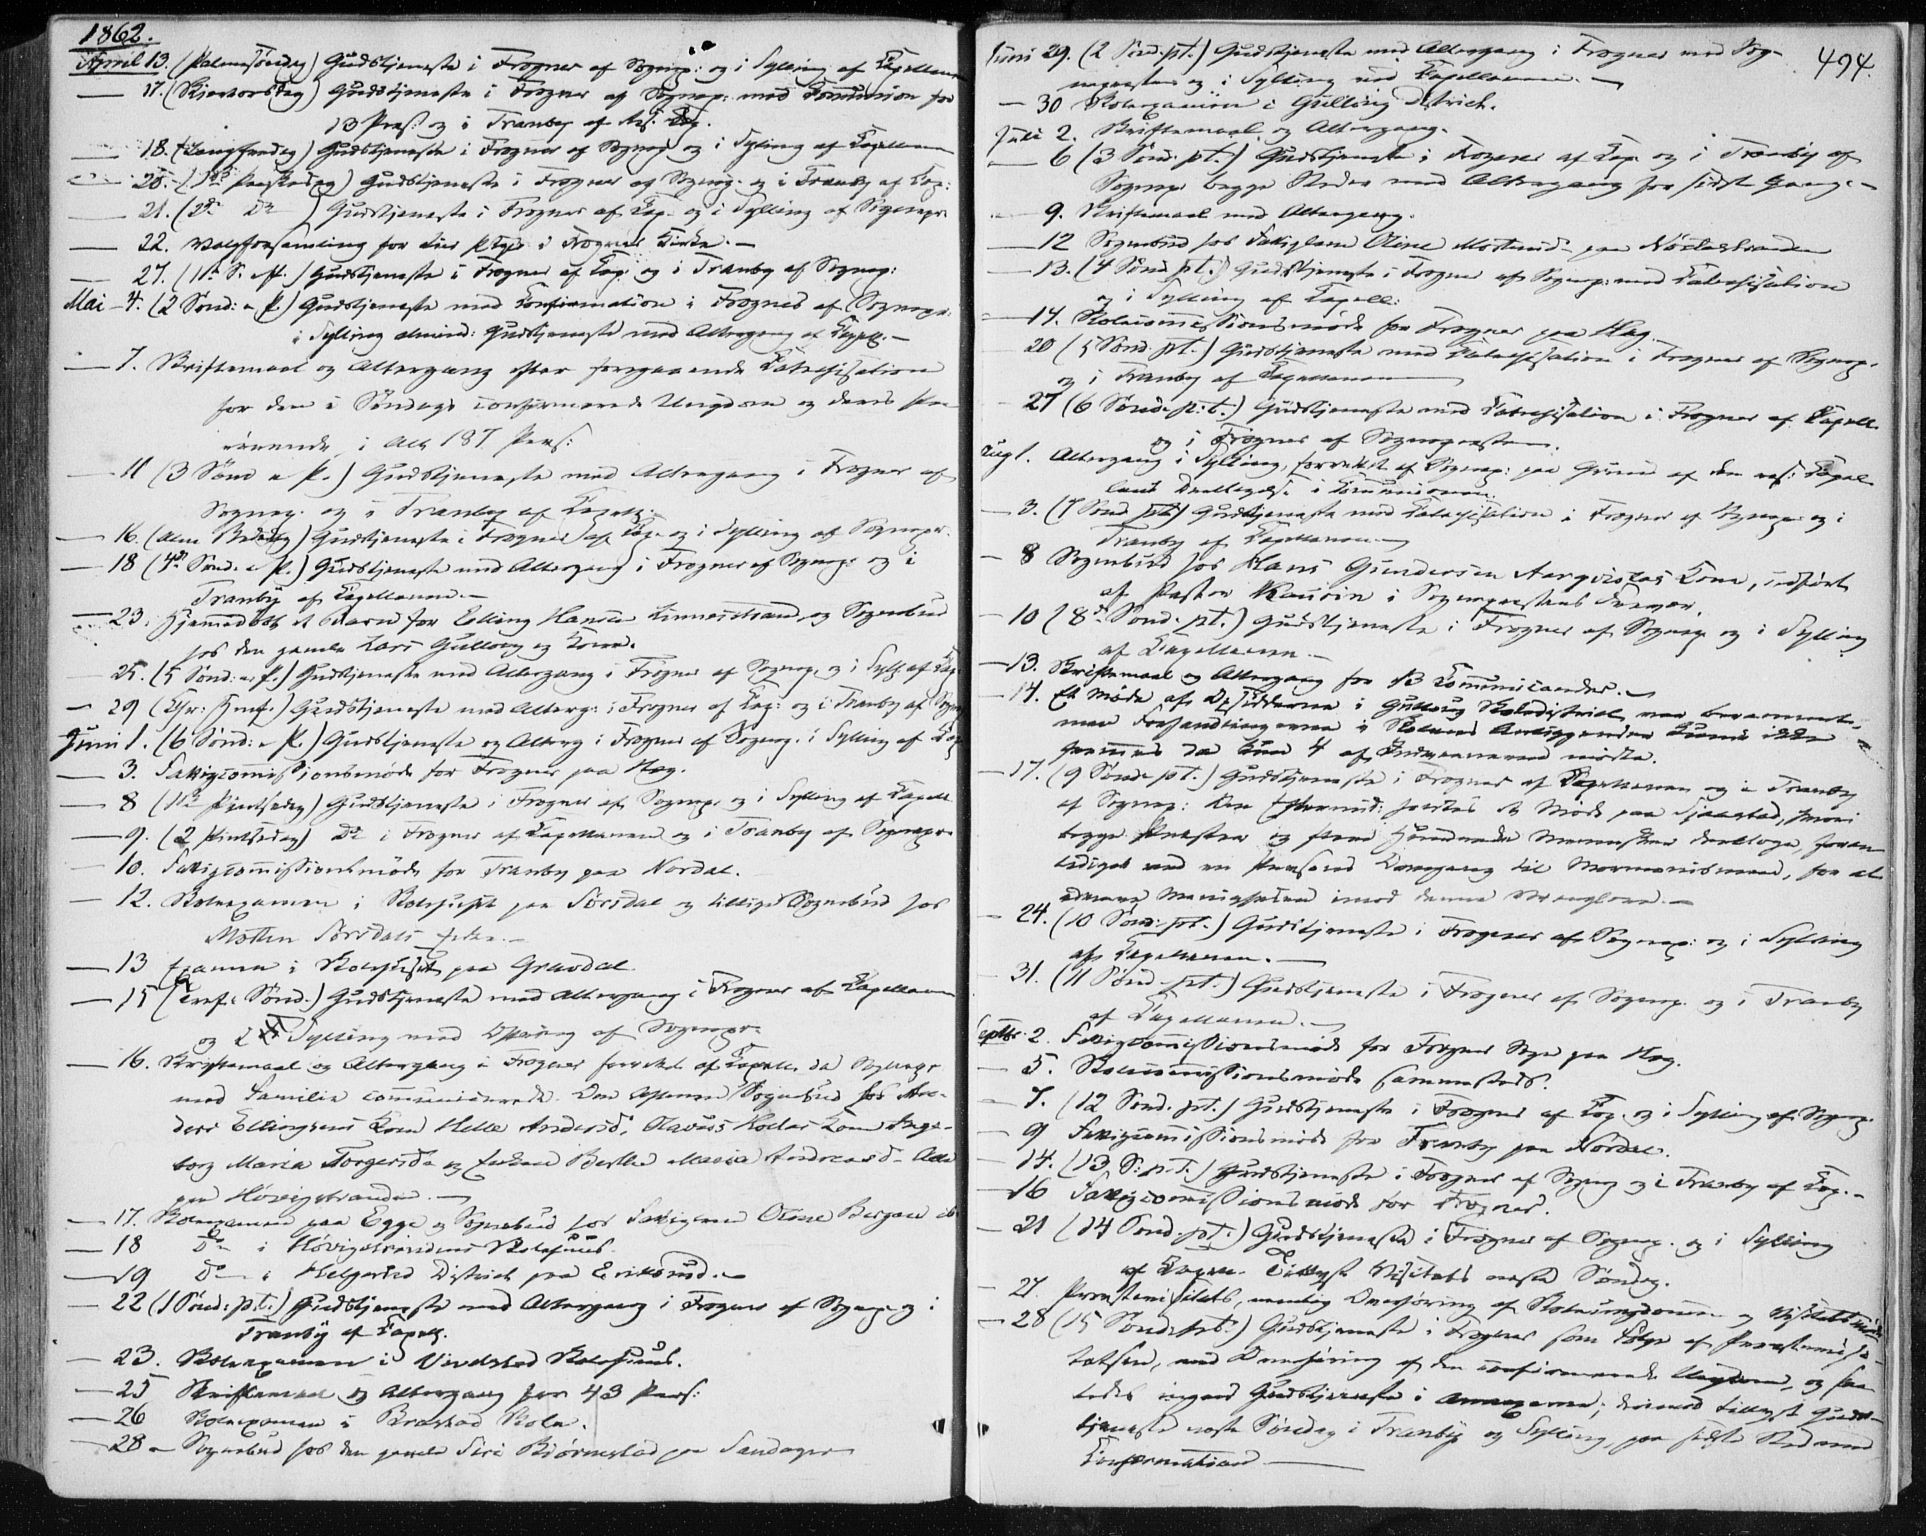 1862.
April 13. (Palmesöndag) Gudstjeneste i Frogner af Sognep: og i Sylling af Capellanen
— 17. (Skjertorsdag) Gudstjeneste i Frogner af Sognep: med Communion for
13 Pers: og i Tranby af
— 18. (Langfredag) Gudstjeneste i Frogner af Sognep. og i Sylling af Capellanen
— 20. (1ste Paaskedag) Gudstjeneste i Frogner af Sognep. og i Tranby af Cap:
— 21. (2den Do) Gudstjeneste i Frogner af Cap. og i Sylling af Sognepr.
— 22. Valgforsamling for Lier Pgd i Frogner Kirke. —
— 27. (1ste S. e. P.) Gudstjeneste i Frogner af Cap: og i Tranby af Sognep:
Mai 4. (2 Sönd: e. P.) Gudstjeneste med Confirmation i Frogner af Sognepr.
i Sylling almind: Gudstjeneste med Altergang af Capell. —
— 7. Skriftemaal og Altergang efter foregaaende Katechisation
for den i Söndags confirmerede Ungdom og deres
i Alt 187 Pers:
— 11 (3 Sönd e. P.) Gudstjeneste med Altergang i Frogner af
Sognep. og i Tranby af Capell.
— 16. (Alm Bededag) Gudstjeneste i Frogner af Cap. og i Sylling af Sognepr.
— 18 (4de Sönd. e. P.) Gudstjeneste med Altergang i Frogner af Sognep: og i
Tranby af Capellanen. —
— 23. Hjemmedöbt et Barn for Elling Hansen Linnesstrand og Sognebud
hos den gamle Lars Gulloug og Kone.
— 25. (5 Sönd: e. P.) Gudstjeneste med Altergang i Frogner af Sognep. og i Syll. af Cap.
— 29 (Chr: Himf.) Gudstjeneste med Alterg: i Frogner af Cap: og i Tranby af Sogn
Juni 1. (6 Sönd: e. P.) Gudstjeneste og Alterg i Frogner af Sognep. i Sylling af Cap
— 3. Fattigcommissionsmöde for Frogner paa Hag.
— 8 (1ste Pintsedag) Gudstjeneste i Frogner af Sognepr og i Sylling af Capell
— 9. (2 Pintsedag) Do i Frogner af Capellanen og i Tranby af Sognepr.
— 10. Fattigcommissionsmöde for Tranby paa Nordal.
— 12. Skoleexamen i Skolehuset paa Sörsdal og tillige Sognebud hos
Morten Sörsdals
— 13 Examen i Skolehuset paa Gravdal
— 15 (Trinf. Sönd.) Gudstjeneste med Altergang i Frogner af Capellanen
og i Sylling med Offring af Sognepr.
— 16. Skriftemaal og Altergang i Frogner forrettet af Capell. da Sognepr
med Familie communicerede. Om Aftenen Sognebud hos An-
ders Ellingsens Kone Helle Andersd, Olavus Kone Inge-
borg Maria Torgersd. og Enken Berthe Maria Andreasd. Alle
paa Hövigstranden. —
— 17. Skoleexamen paa Egge og Sognebud hos Fattiglem Oline Bergane
— 18 Do i Hövigstrandens Skolehuus.
— 19 Do — i Helgerud District paa Eriksrud. —
— 22 (1 Sönd: p. t.) Gudstjeneste med Altergang i Frogner af Sognep. og i
Tranby af Capell.
— 23. Skoleexamen i Vivelstad Skolehuus.
— 25 Skriftemaal og Altergang for 43 Pers:
— 26 Skoleexamen i Brastad Skole.
— 28 — Sognebud hos den gamle Siri Björnestad paa Sandager
494.
Juni 29. (2 Sönd: pt.) Gudstjeneste med Altergang i Frogner med Sog-
nepræsten og i Sylling ved Capellanen. —
— 30 Skoleexamen i Gulloug District.
Juli 2. Skriftemaal og Altergang.
— 6 (3 Sönd. pt.) Gudstjeneste i Frogner af Cap. og i Tranby af
Sognep. begge Steder med Altergang for sidste Gang. —
— 9. Skriftemaal med Altergang.
— 12 Sognebud hos Fattiglem Oline Mortensd. paa Nöstestranden
— 13. (4 Sönd. pt.) Gudstjeneste i Frogner af Sognep: med Katechisation
og i Sylling af Capell:
— 14. Skolecommissionsmöde for Frogner paa Hag.
20 (5 Sönd. pt.) Gudstjeneste med Katechisation i Frogner af Sognep.
og i Tranby af Capellanen
27 (6 Sönd. p. t.) Gudstjeneste med Katechisation i Frogner af Capell.
og i Frogner af Sognepræsten.
Aug 1. Altergang i Sylling, forrettet af Sognep: paa Grund af den res: Capel-
lans Deeltagelse i Communionen.
— 3. (7 Sönd pt) Gudstjeneste med Katechisation i Frogner af Sognep. og i
Tranby af Capellanen
— 8 Sognebud hos Hans Gundersen Kone, udfört
af Pastor Kaurin i Sognepræstens Fravær.
— 10 (8de Sönd. pt.) Gudstjeneste i Frogner af Sognep. og i Sylling
af Capellanen. —
— 13. Skriftemaal og Altergang for 13 Communicanter. —
— 14. Et Möde af Opsidderne i Gulloug Skoledistrict var berammet,
men Forhandlingerne i Skolens Anliggender kunde ikke
fremmes da kun 4 af Indvaanerne mödte.
— 17. (9 Sönd. pt.) Gudstjeneste i Frogner af Capellanen og i Tranby
af Sognep: Om Eftermid: holdtes et Möde paa Sjaastad, hvori
begge Præster og flere Hundrede Mennesker deeltoge, foran-
lediget ved en Persons Overgang til Mormonismen, for at
advare Menigheden imod denne Vranglære. —
— 24. (10 Sönd: pt.) Gudstjeneste i Frogner af Sognep: og i Sylling
af Capellanen. —
— 31. (11 Sönd. pt.) Gudstjeneste i Frogner af Sognep. og i Tranby
af Capellanen. —
Septbr. 2. Fattigcommissionsmöde for Frogner Sogn paa Hag.
— 5. Skolecommissionsmöde sammesteds.
— 7. (12 Sönd. pt.) Gudstjeneste i Frogner af Cap. og i Sylling af Sognep.
— 9 Fattigcommissionsmöde for Tranby paa Nordal.
— 14. (13 S: p. T.) Gudstjeneste i Frogner af Sognep og i Tranby af Cap. —
— 16 Fattigcommissionsmöde for Frogner.
— 21 (14 Sönd. pt.) Gudstjeneste i Frogner af Sognep. og i Sylling
af Capell. Tillyst Visitats næste Söndag.
— 27. Provstevisitats, nemlig Overhöring af Skoleungdommen og
— 28 (15 Sönd. pt.) Gudstjeneste i Frogner som Fölge af Provstevisi-
tatsen, med Overhöring af den confirmerede Ungdom, og saa-
ledes ingen Gudstjeneste i Annexerne; derimod tillyst Guds-
tjeneste næste Söndag i Tranby og Sylling, paa sidste Sted med
Confirmation —